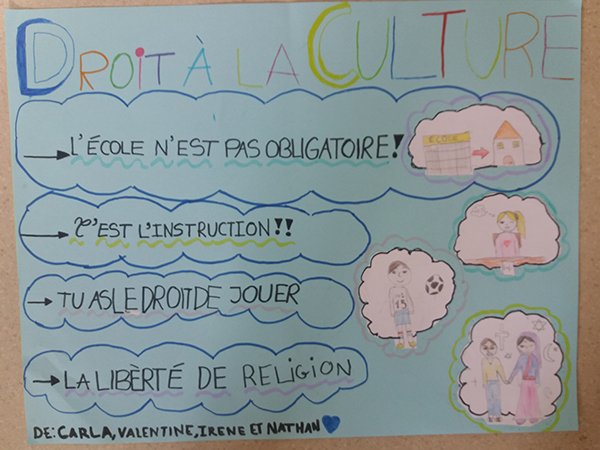 DROIT À LA CULTURE
L'ÉCOLE N'EST PAS OBLIGATOIRE!
ÉCOLE
C'EST L'INSTRUCTION!!
TU AS LE DROIT DE JOUER
15
LA LIBÈRTÉ DE RELIGION
DE: CARLA, VALENTINE, IRENE ET NATHAN